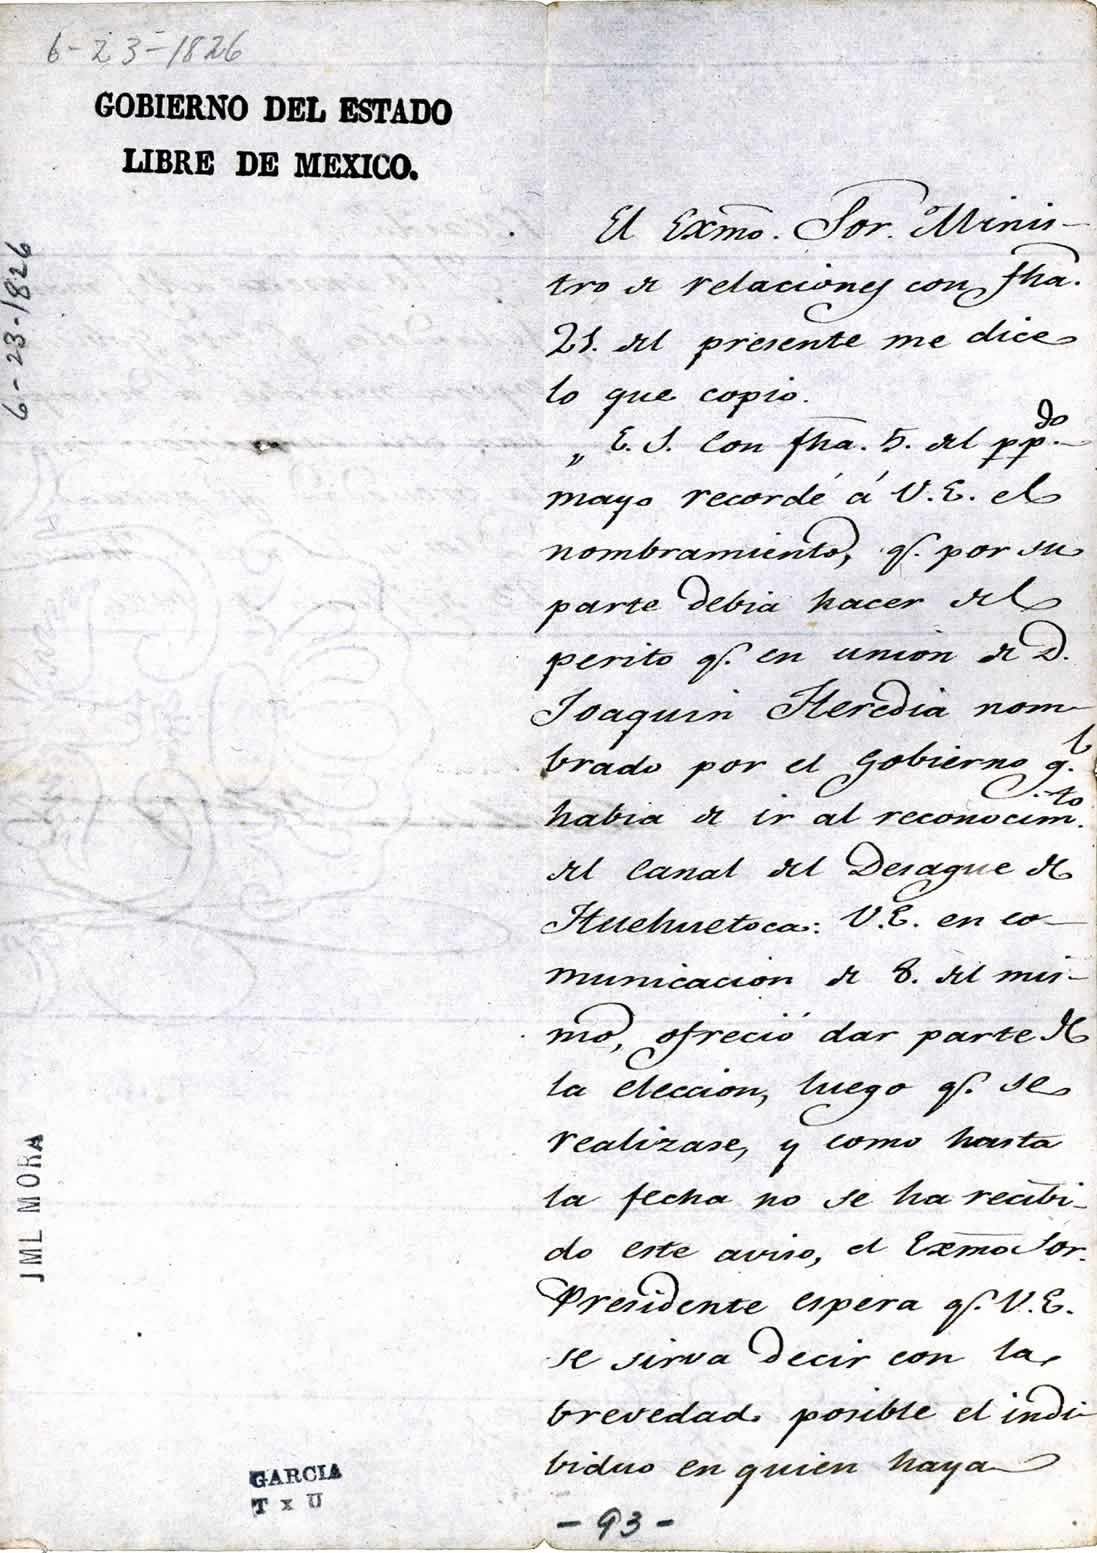 6-23-1826
GOBIERNO DEL ESTADO
LIBRE DE MEXICO.
6-23-1826
El Exmo. Sor. Minis-
tro de relaciones con fha.
21. del presente me dice
lo que copio.
„ E. S. Con fha. 5. del pp.do
mayo recordé á V.E. el
nombramiento, q. por su
parte debia hacer del
perito q. en union de D.
Joaquin Heredia nom-
brado por el Gobierno g.l
habia de ir al reconocim.to
del Canal del Desague de
Huehuetoca: V.E. en co-
municacion de 8. del mis-
mo, ofreció dar parte de
la eleccion, luego q. se
realizase, y como hasta
la fecha no se ha recibi-
do este aviso, el Exmo Sor.
Presidente espera q. V.E.
se sirva decir con la
brevedad posible el indi-
biduo en quien haya
JML MORA
GARCIA
T x U
- 93 -